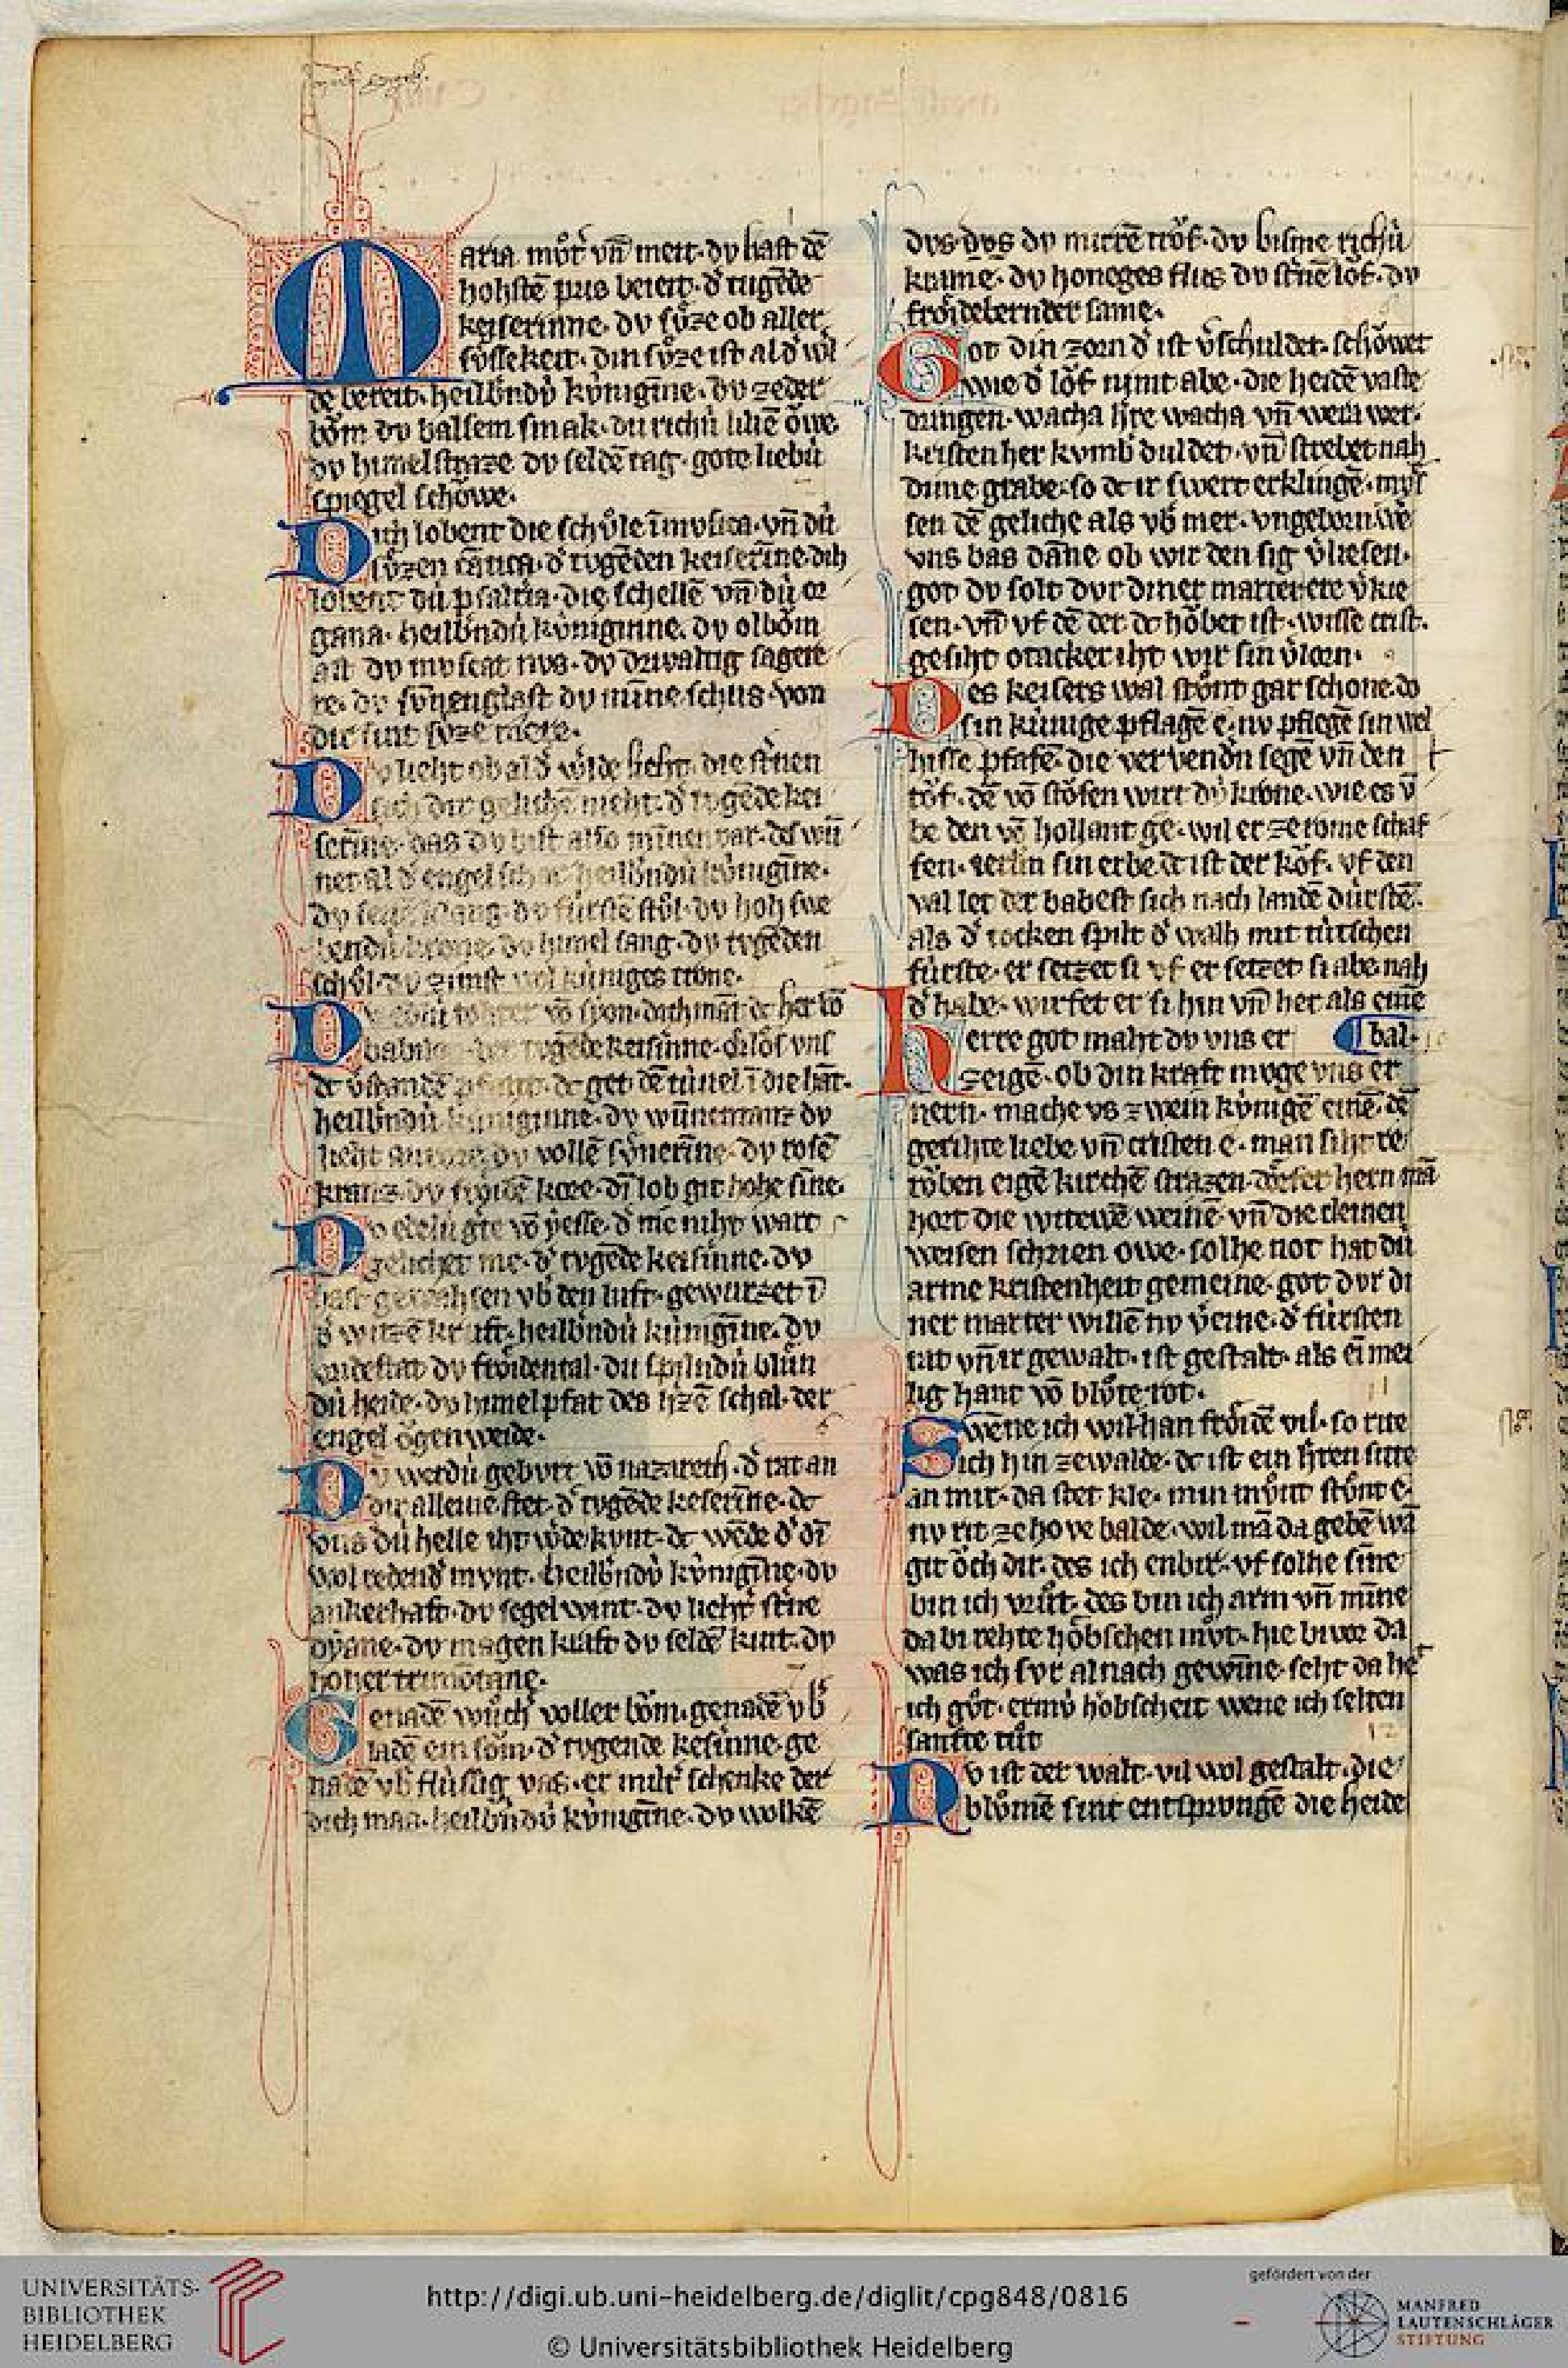 Maria můt̾ vn̄ meit· dv hast dē
hohstē pris bereit· d̾ tugēde
keiserinne· dv sůze ob aller
svͦssekeit· din sůze ist al d̾ w̾l
de bereit· heilb̾ndv̇ kv̇nigīne· dv zeder
bōm dv balsem smak· du richv̇ lilīē ŏwe
dv himelstraze dv seldē tag· gote liebu̇
spiegel schŏwe·
Dich lobent die schůle ī mvsica· vn̄ du̇
sůzen cātica· d̾ tvgēden keiserīne· dih
lobent du̇ psaltria· die schellē vn̄ du̇ or
gana· heilb̾ndu̇ kv̇niginne· dv olbŏm
ast dv mvscat nvs· dv drivaltig sagere
re· dv svn̄englast dv min̄e schus· von
dir sint sůze mere·
Dv lieht ob al d̾ w̾lde lieht· die st̾nen
sich dir gelichē nieht· d̾ tvgēde kei
serīne· das dv bist also min̄en var· des wn̄
net al d̾ engel schar heilb̾ndu̇ kv̇nigīne·
dv seiten klang· dv fu̇rstē stůl· dv hoh swe
bendu̇ krone· dv himel sang· dv tvgēden
schůl· dv zimst wol ku̇niges trone·
vō syon· dich māt dc her vō
babilon· der tvgēde keis̾inne· erlŏs vns
dc get dē tu̇vel ī die hāt·
heilb̾ndu̇ ku̇niginne· dv wn̄nentanz dv
lieht aurora dv vollē sv̊nerīne· dv rosē
kranz· dv frŏidē kore· dī lob git hohe sīne·
Dv edelu̇ gte vō yesse· d̾ nie niht wart
gelichet me· d̾ tvgēde keis̾inne· dv
hast gewahsen v̾b den luft· gewurzet ī
d̾ witzē kraft· heilb̾ndu̇ ku̇nigīne· dv
dv frŏidental· du spilndu̇ blůn
du̇ heide· dv himelpfat des h̾zē schal· der
engel ŏgen weide·
Dv werdu̇ gebvrt vō nazareth· d̾ rat an
dir alleine stet· d̾ tvgēde keserīne· dc
vns du̇ helle iht w̾de kvnt· dc wēde d̾ dī
wol redend̾ mvnt· heilb̾ndv̇ kv̇nigīne· dv
ankerhaft· dv segel wint· dv liehт̾ st̾ne
dyane· dv magen kraft dv seldē kint· dv
hoher trimōtane·
Genadē wůch̾ voller bŏm· genadē v̾b
ladē ein sŏm· d̾ tvgende kes̾inne· ge
nade v̾b flu̇ssig vas· er milt̾ schenke der
dich mas· heilb̾ndv̇ kv̇nigīne· dv wolkē
dvs dvs dv mirrē trŏf· dv bisme richu̇
krame· dv honeges flus dv st̾nē lŏf· dv
frŏidebernder same·
Got din zorn d̾ ist v̾schuldet· schŏwet
wie d̾ lŏf nimt abe· die heidē vaste
dringen· wacha h̾re wacha vn̄ wera wer·
kristen her kvmb̾ duldet· vn̄ strebet nah
dime grabe· so dc ir swert erklingē· mvͤs
sen dē geliche als v̾b mer· vngeborn wē
vns bas dāne ob wir den sig v̾liesen·
got dv solt dvr diner marter ere v̾kie
sen· vn̄ vf dē der dc hŏbet ist· wisse crist·
gesiht otacker iht wir sin v̾lorn·
Des keisers wal stůnt gar schone· do
sin ku̇nige pflagē e· nv pflegē sin wel
hisse pfafē· die verwendn̄ segē vn̄ den
tŏf· dē vō stŏfen wirt dv̇ krone· wie es v̾
be den vō hollant ge· wil er ze rome schaf
fen· berlin sin erbe dc ist der kŏf· vf den
wal let der babest sich nach landē du̇rstē·
als d̾ tocken spilt d̾ walh mit tu̇tschen
fu̇rstē· er setzet si vf er setzet si abe nah
d̾ habe· wirfet er si hin vn̄ her als einē
Herre got maht dv vns er bal·
zeigē· ob din kraft mvge vns er
nern· mache vs zwein kv̇nigē einē· dē
gerihte liebe vn̄ cristen e· man siht re
rŏben eigē kirchē strazen· dörfer hern mā
hort die witewē weinē vn̄ die cleinen
weisen schrien owe· solhe not hat du̇
arme kristenheit gemeine· got dvr di
ner marter willē nv v̾eine· d̾ fu̇rsten
rat vn̄ ir gewalt· ist gestalt· als eī mei
lig hant vō blůte rot·
Swēne ich wil han frŏidē vil· so rite
ich hin ze walde· dc ist ein h̾ren sitte
an mir· da stet kle· min mv̊nt stůnt e·
nv rit ze hove balde· wil mā da gebē wā
git ŏch dir· des ich enbir· vf solhe sīne
bin ich vrůt· des bin ich arm vn̄ mīne
da bi rehte hŏbschen mvͦt· hie bi vor da
was ich fvr al nach gewīne· seht da het
ich gůt· er mv̇ hŏbscheit wene ich selten
sanfte tůt
Nv ist der walt· vil wol gestalt· die
blůmē sint entsprvngē die heide
UNIVERSITÄTS-
BIBLIOTHEK
HEIDELBERG
http://digi.ub.uni-heidelberg.de/diglit/cpg848/0816
© Universitätsbibliothek Heidelberg
gefördert von der
MANFRED
LAUTENSCHLÄGER
STIFTUNG